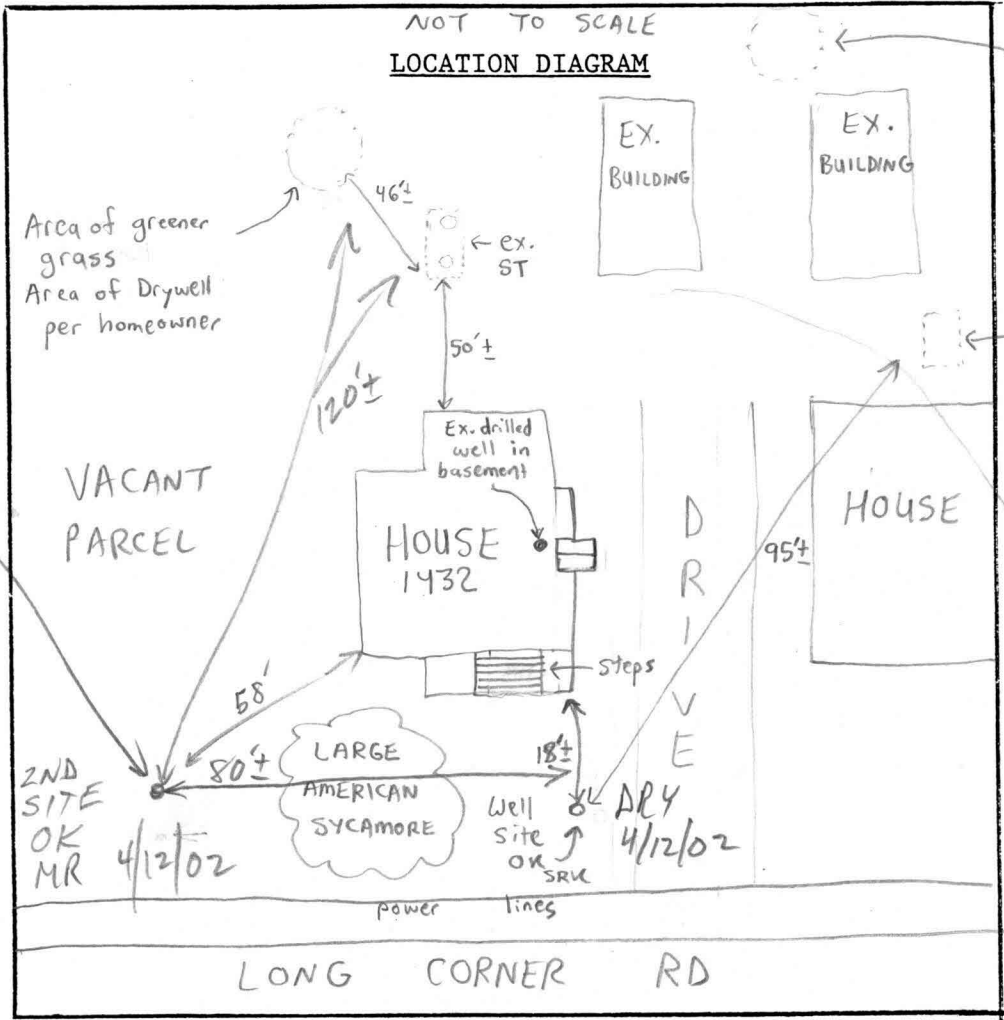 NOT TO SCALE
LOCATION DIAGRAM
EX.
BUILDING
EX.
BUILDING
46'±
Area of greener
grass
Area of Drywell
per homeowner
ex.
ST
50'±
120'±
Ex. drilled
well in
basement
VACANT
PARCEL
HOUSE
1432
DRIVE
95'±
HOUSE
Steps
58'
18'±
80'±
LARGE
AMERICAN
SYCAMORE
2ND
SITE
OK
MR 4/12/02
Well
Site
OK
SRK
DRY
4/12/02
power lines
LONG CORNER RD